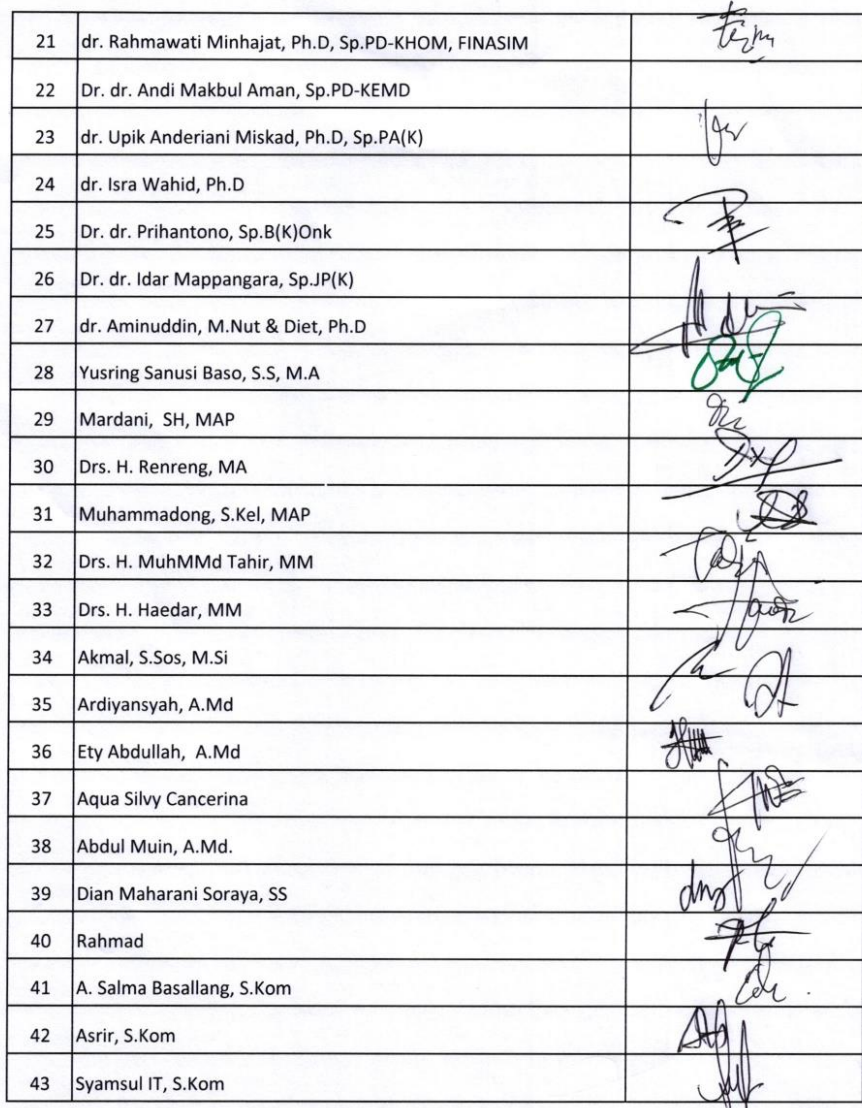 21 dr. Rahmawati Minhajat, Ph.D, Sp.PD-KHOM, FINASIM
22 Dr. dr. Andi Makbul Aman, Sp.PD-KEMD
23 dr. Upik Anderiani Miskad, Ph.D, Sp.PA(K)
24 dr. Isra Wahid, Ph.D
25 Dr. dr. Prihantono, Sp.B(K)Onk
26 Dr. dr. Idar Mappangara, Sp.JP(K)
27 dr. Aminuddin, M.Nut & Diet, Ph.D
28 Yusring Sanusi Baso, S.S, M.A
29 Mardani, SH, MAP
30 Drs. H. Renreng, MA
31 Muhammadong, S.Kel, MAP
32 Drs. H. MuhMMd Tahir, MM
33 Drs. H. Haedar, MM
34 Akmal, S.Sos, M.Si
35 Ardiyansyah, A.Md
36 Ety Abdullah, A.Md
37 Aqua Silvy Cancerina
38 Abdul Muin, A.Md.
39 Dian Maharani Soraya, SS
40 Rahmad
41 A. Salma Basallang, S.Kom
42 Asrir, S.Kom
43 Syamsul IT, S.Kom